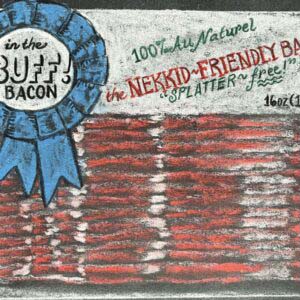 in the
BUFF!
BACON
100% Au Naturel
the NEKKID~FRIENDLY BA
"SPLATTER~free!"
16oz(1